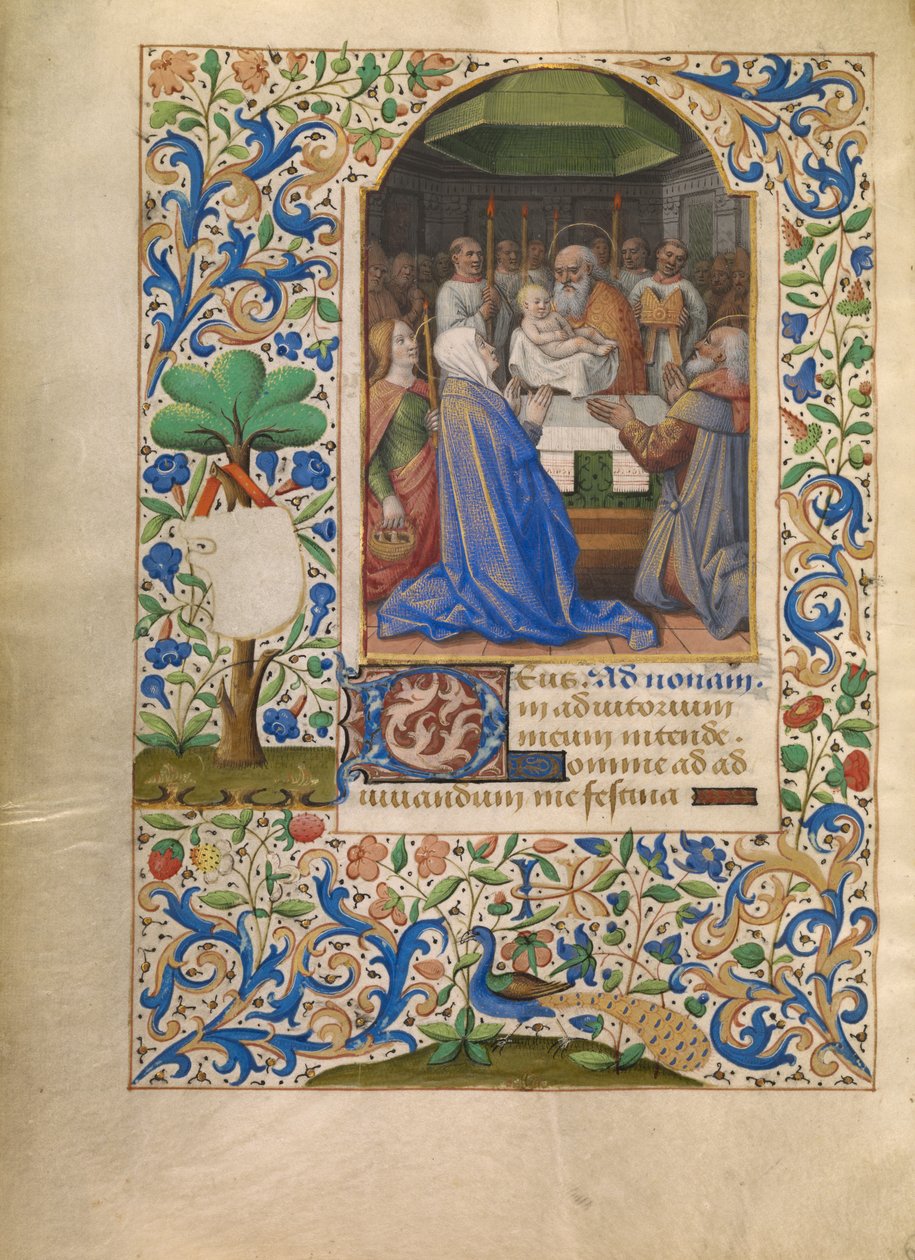 Deus. Ad nonam.
in adiutorium
meum intende.
Domine ad ad
iuuandum me festina